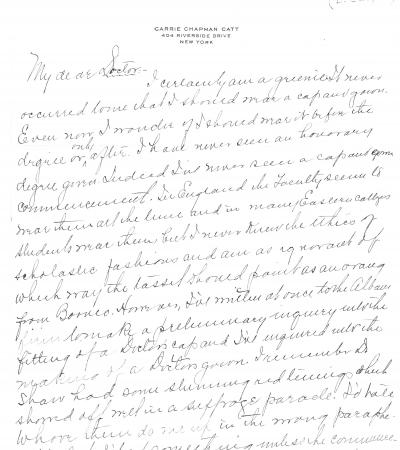 CARRIE CHAPMAN CATT
404 RIVERSIDE DRIVE
NEW YORK
My dear Doctor—
I certainly am a greenie. It never
occurred to me that I should wear a cap and gown.
Even now, I wonder if I should wear it before the
degree or only after. I have never seen an honorary
degree given. Indeed I've never seen a cap and gown
commencement. In England the Faculty seems to
wear them all the time and in many Eastern colleges
students wear them, but I never knew the ethics of
scholastic fashions and am as ignorant of
which way the tassel should point as an orang
from Borneo. However, I've written at once to the Albany
firm to make a preliminary inquiry into the
fitting of a Doctor's cap and I've inquired into the
making of a Doctor's gown. I remember Dr
Shaw had some stunning red linings which
showed off well in a suffrage parade. I'd hate
them do me up in the wrong